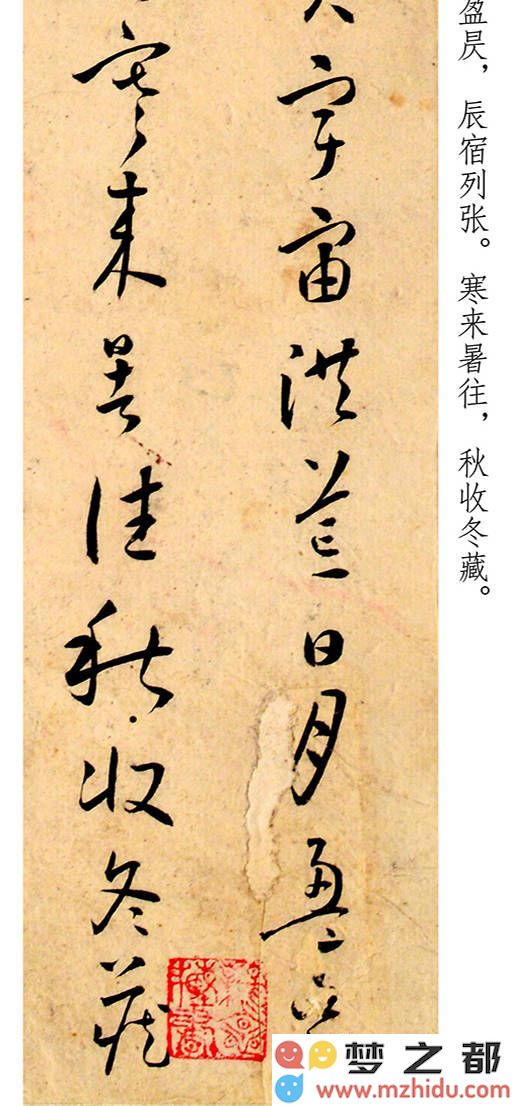 盈昃，辰宿列张。寒来暑往，秋收冬藏。
宇宙洪荒日月盈
寒来暑往秋收冬藏
梦之都
www.mzhidu.com